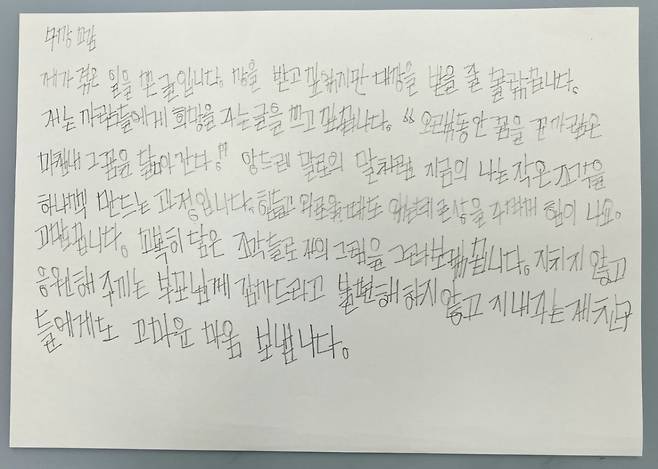 수상 소감
제가 겪은 일을 쓴 글입니다. 상을 받고 싶었지만 대상을 받을 줄 몰랐습니다.
저는 사람들에게 희망을 주는 글을 쓰고 싶습니다. "오랫동안 꿈을 꾼 사람은
마침내 그 꿈을 닮아 간다." 앙드레 말로의 말처럼 지금의 나는 작은 조각을
하나씩 만드는 과정입니다. 힘들고 외로울 때도 에세이 상을 힘이 나요.
감사합니다. 소복히 담은 조각들로 저의 그림을 그려보겠습니다. 지치지 않고
응원해 주시는 부모님께 감사드리고 불편해 하지 않고 지내주는 제 친구
들에게도 고마운 마음 보냅니다.